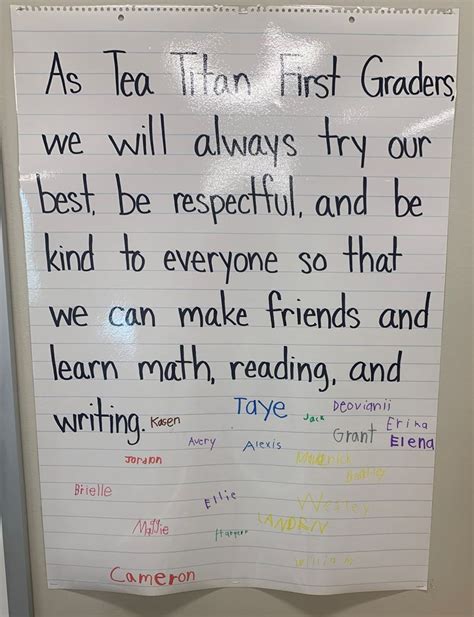 As Tea Titan First Graders,
we will always try our
best, be respectful, and be
kind to everyone so that
we can make friends and
learn math, reading, and
writing. Kasen Taye Jack Deovianii
Grant Erina
Avery Alexis Elena
Jordan Maverick
Brielle
Ellie Wesley
Mattie LANDRIN
William
Cameron